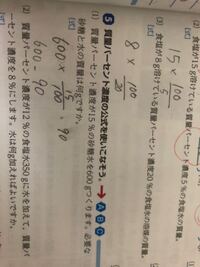 (2) 食塩が15g溶けている質量パーセント濃度5%の食塩水の質量。
(式)
15 × 100/5
(3) 食塩が8g溶けている質量パーセント濃度20%の食塩水の溶媒の質量。
(式)
8 × 100/20
5 質量パーセント濃度の公式を使いこなそう。→ A B C
(1) 質量パーセント濃度が15%の砂糖水を600gつくります。必要な
砂糖と水の質量は何gですか。
(式)
600 × 15/100 = 90
600 - 90
(2) 質量パーセント濃度が12%の食塩水350gに水を加えて、質量パ
ーセント濃度を8%にします。水は何g加えればよいですか。